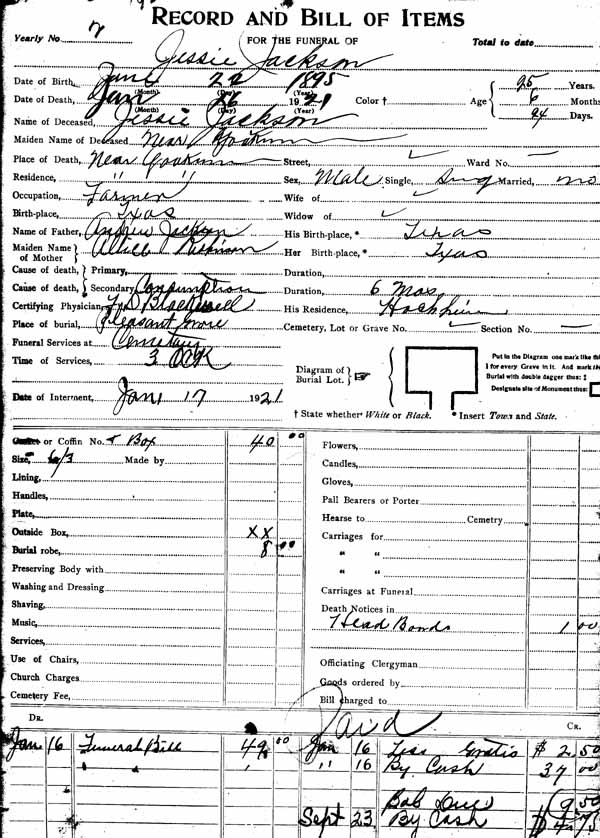 RECORD AND BILL OF ITEMS
Yearly No. 2 FOR THE FUNERAL OF Total to date
Jessie Jackson
Date of Birth, June 22 1895 25 Years.
(Month) (Day) (Year)
Date of Death, Jan 26 1921 Color † Age 6 Months
(Month) (Day) (Year)
Name of Deceased, Jessie Jackson 24 Days.
Maiden Name of Deceased Near Yoakum
Place of Death, Near Yoakum Street, Ward No.
Residence, " " Sex, Male Single, Sing Married, no
Occupation, Farmer Wife of
Birth-place, Texas Widow of
Name of Father, Andrew Jackson His Birth-place, * Texas
Maiden Name of Mother Her Birth-place, * Texas
Cause of death, Primary, Duration,
Cause of death, Secondary Consumption Duration, 6 Mos
Certifying Physician, Blackwell His Residence, Hochheim
Place of burial, Pleasant Cemetery, Lot or Grave No. Section No.
Funeral Services at Cemetary
Time of Services, 3 OCK Diagram of Burial Lot. Put in the Diagram one mark like this
I for every Grave in it. And mark the
Burial with double dagger thus: ‡
Designate site of Monument thus:
Date of Interment, Jan 17 1921
† State whether White or Black. * Insert Town and State.
Casket or Coffin No. + Box 40 00 Flowers,
Size, 6/3 Made by Candles,
Lining, Gloves,
Handles, Pall Bearers or Porter
Plate, Hearse to Cemetry
Outside Box, XX Carriages for
Burial robe, 8 00 " "
Preserving Body with " "
Washing and Dressing Carriages at Funeral
Shaving, Death Notices in
Music, Head Bonds 1 00
Services,
Use of Chairs, Officiating Clergyman
Church Charges Goods ordered by
Cemetery Fee, Bill charged to
Paid
DR. CR.
Jan 16 Funeral Bill 49 00 Jan 16 Less Gratis $ 2 50
" 16 By Cash 37 00
Bal Due 9 50
Sept 23 By Cash $ 4 75